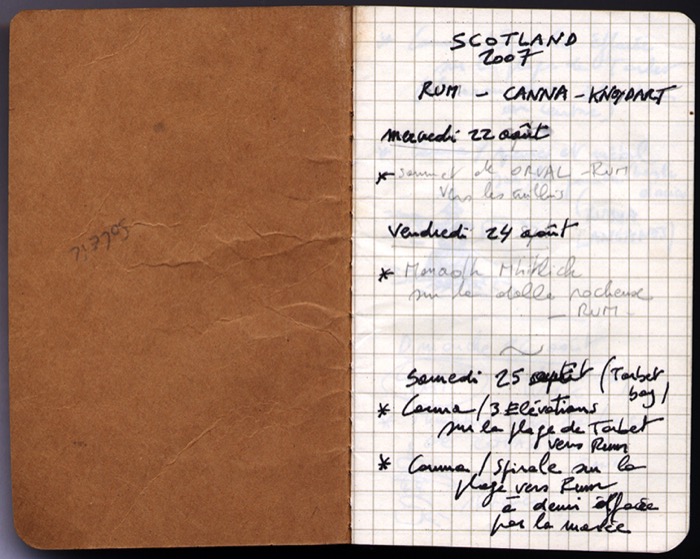 SCOTLAND
2007
RUM - CANNA - KNOYDART
mercredi 22 août
* sommet de ORVAL - RUM
vers les cuillins
Vendredi 24 août
* Monadh Mhiltich
sur la dalle rocheuse
- RUM -
Samedi 25 août (Tarbet
bay)
* Canna / 3 Elévations
sur la plage de Tarbet
vers Rum
* Canna / Spirale sur la
plage vers Rum
à demi effacée
par la marée